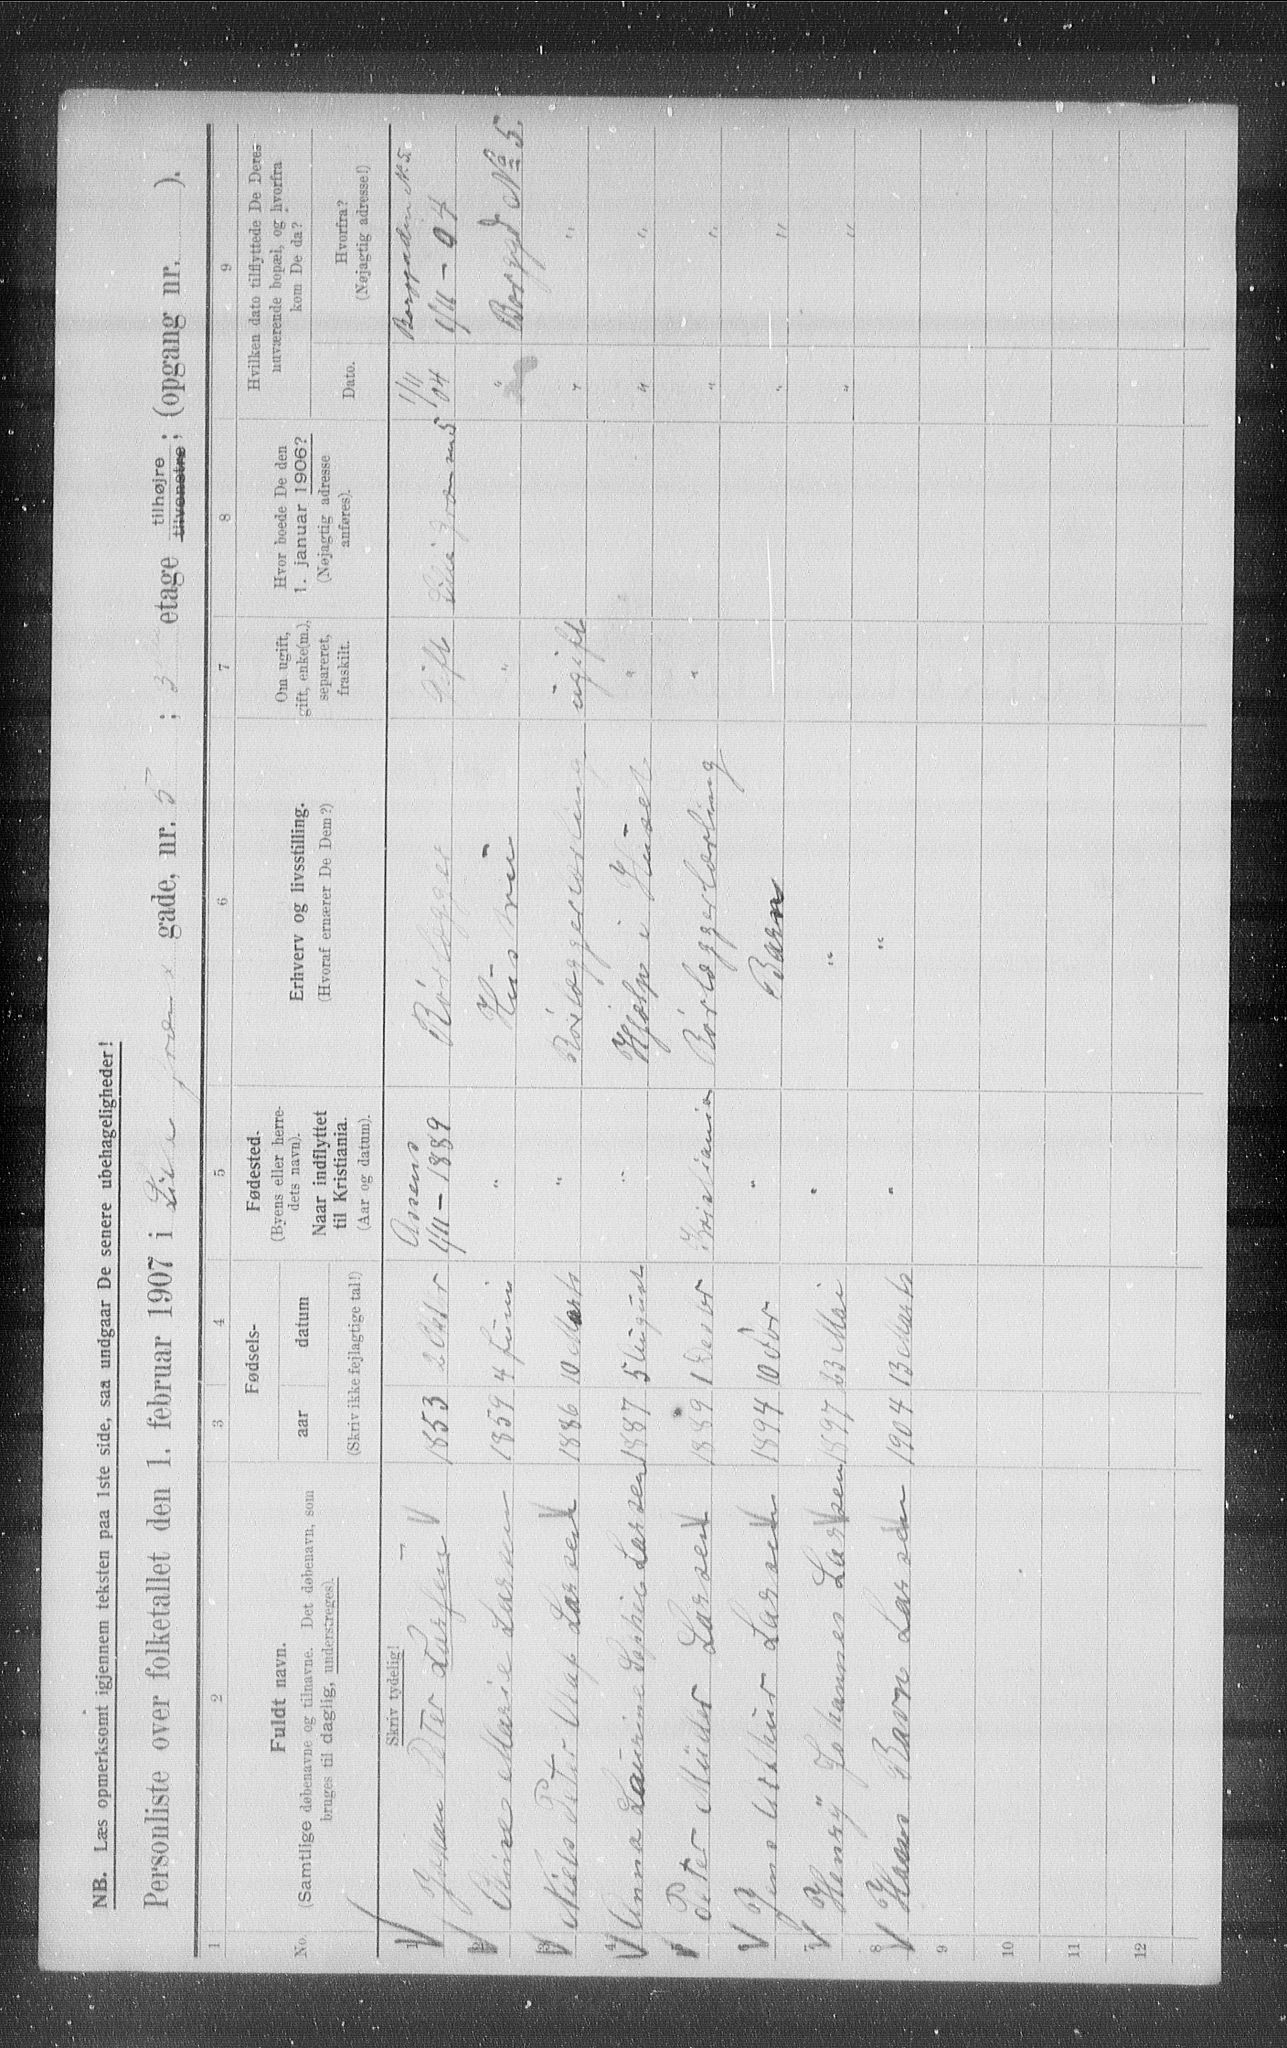 NB. Læs opmerksomt igjennem teksten paa 1ste side, saa undgaar De senere ubehageligheder!
Personliste over folketallet den 1. februar 1907 i Lille grænse gade, nr. 5 ; 3 etage tilhøjre tilvenstre; (opgang nr. ).
1 2 3 4 5 6 7 8 9
No.
Fuldt navn.
(Samtlige døbenavne og tilnavne. Det døbenavn, som
bruges til daglig, understreges).
Fødsels-
aar datum
(Skriv ikke fejlagtige tal!)
Fødested.
(Byens eller herre-
dets navn).
Naar indflyttet
til Kristiania.
(Aar og datum).
Erhverv og livsstilling.
(Hvoraf ernærer De Dem?)
Om ugift,
gift, enke(m.),
separeret,
fraskilt.
Hvor boede De den
1. januar 1906?
(Nøjagtig adresse
anføres).
Hvilken dato tilflyttede De Deres
nuværende bopæl, og hvorfra
kom De da?
Dato.
Hvorfra?
(Nøjagtig adresse!)
Skriv tydelig!
1 Johan Peter Larsen 1853 2 Oktbr Assens 1/11-1889 Rörlægger Gift 1/11 04 Borggaden N. 5. 1/11-04
2 Marie Larsen 1859 4 Juni " Hustru " " Borggd No 5.
3 Niels Peter Olaf Larsen 1886 10 Marts " Rörlæggerlærling ugift " "
4 Anna Laurine Sophie Larsen 1887 5 August " Hjælp i Huset " " "
5 Peter Müller Larsen 1889 1 Decbr Kristiania Rörlæggerlærling " " "
6 Jens Arthur Larsen 1894 10 Nov " Barn " "
7 Henry Johannes Larsen 1897 23 Mai " " " "
8 Hans Ravn Larsen 1904 13 Marts " "
9
10
11
12